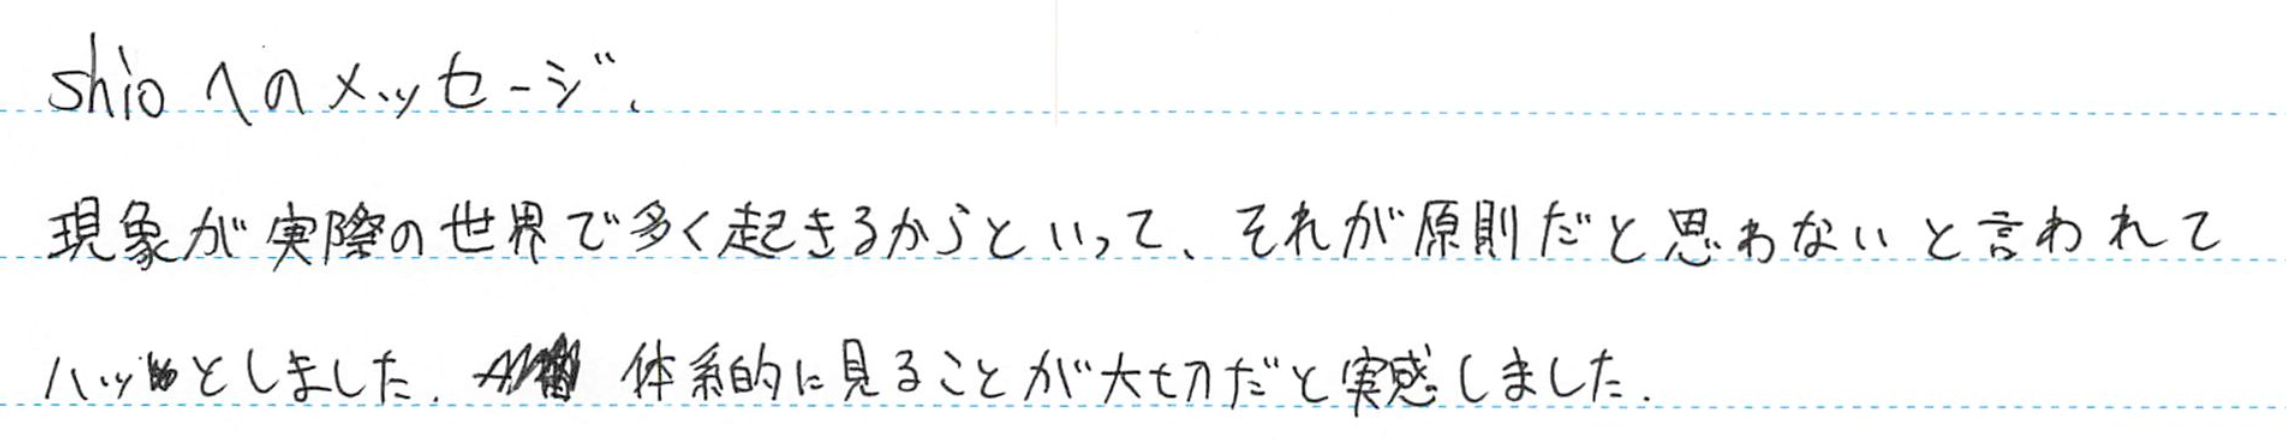 shioへのメッセージ.
現象が実際の世界で多く起きるからといって、それが原則だと思わないと言われて
ハッとしました. 体系的に見ることが大切だと実感しました.